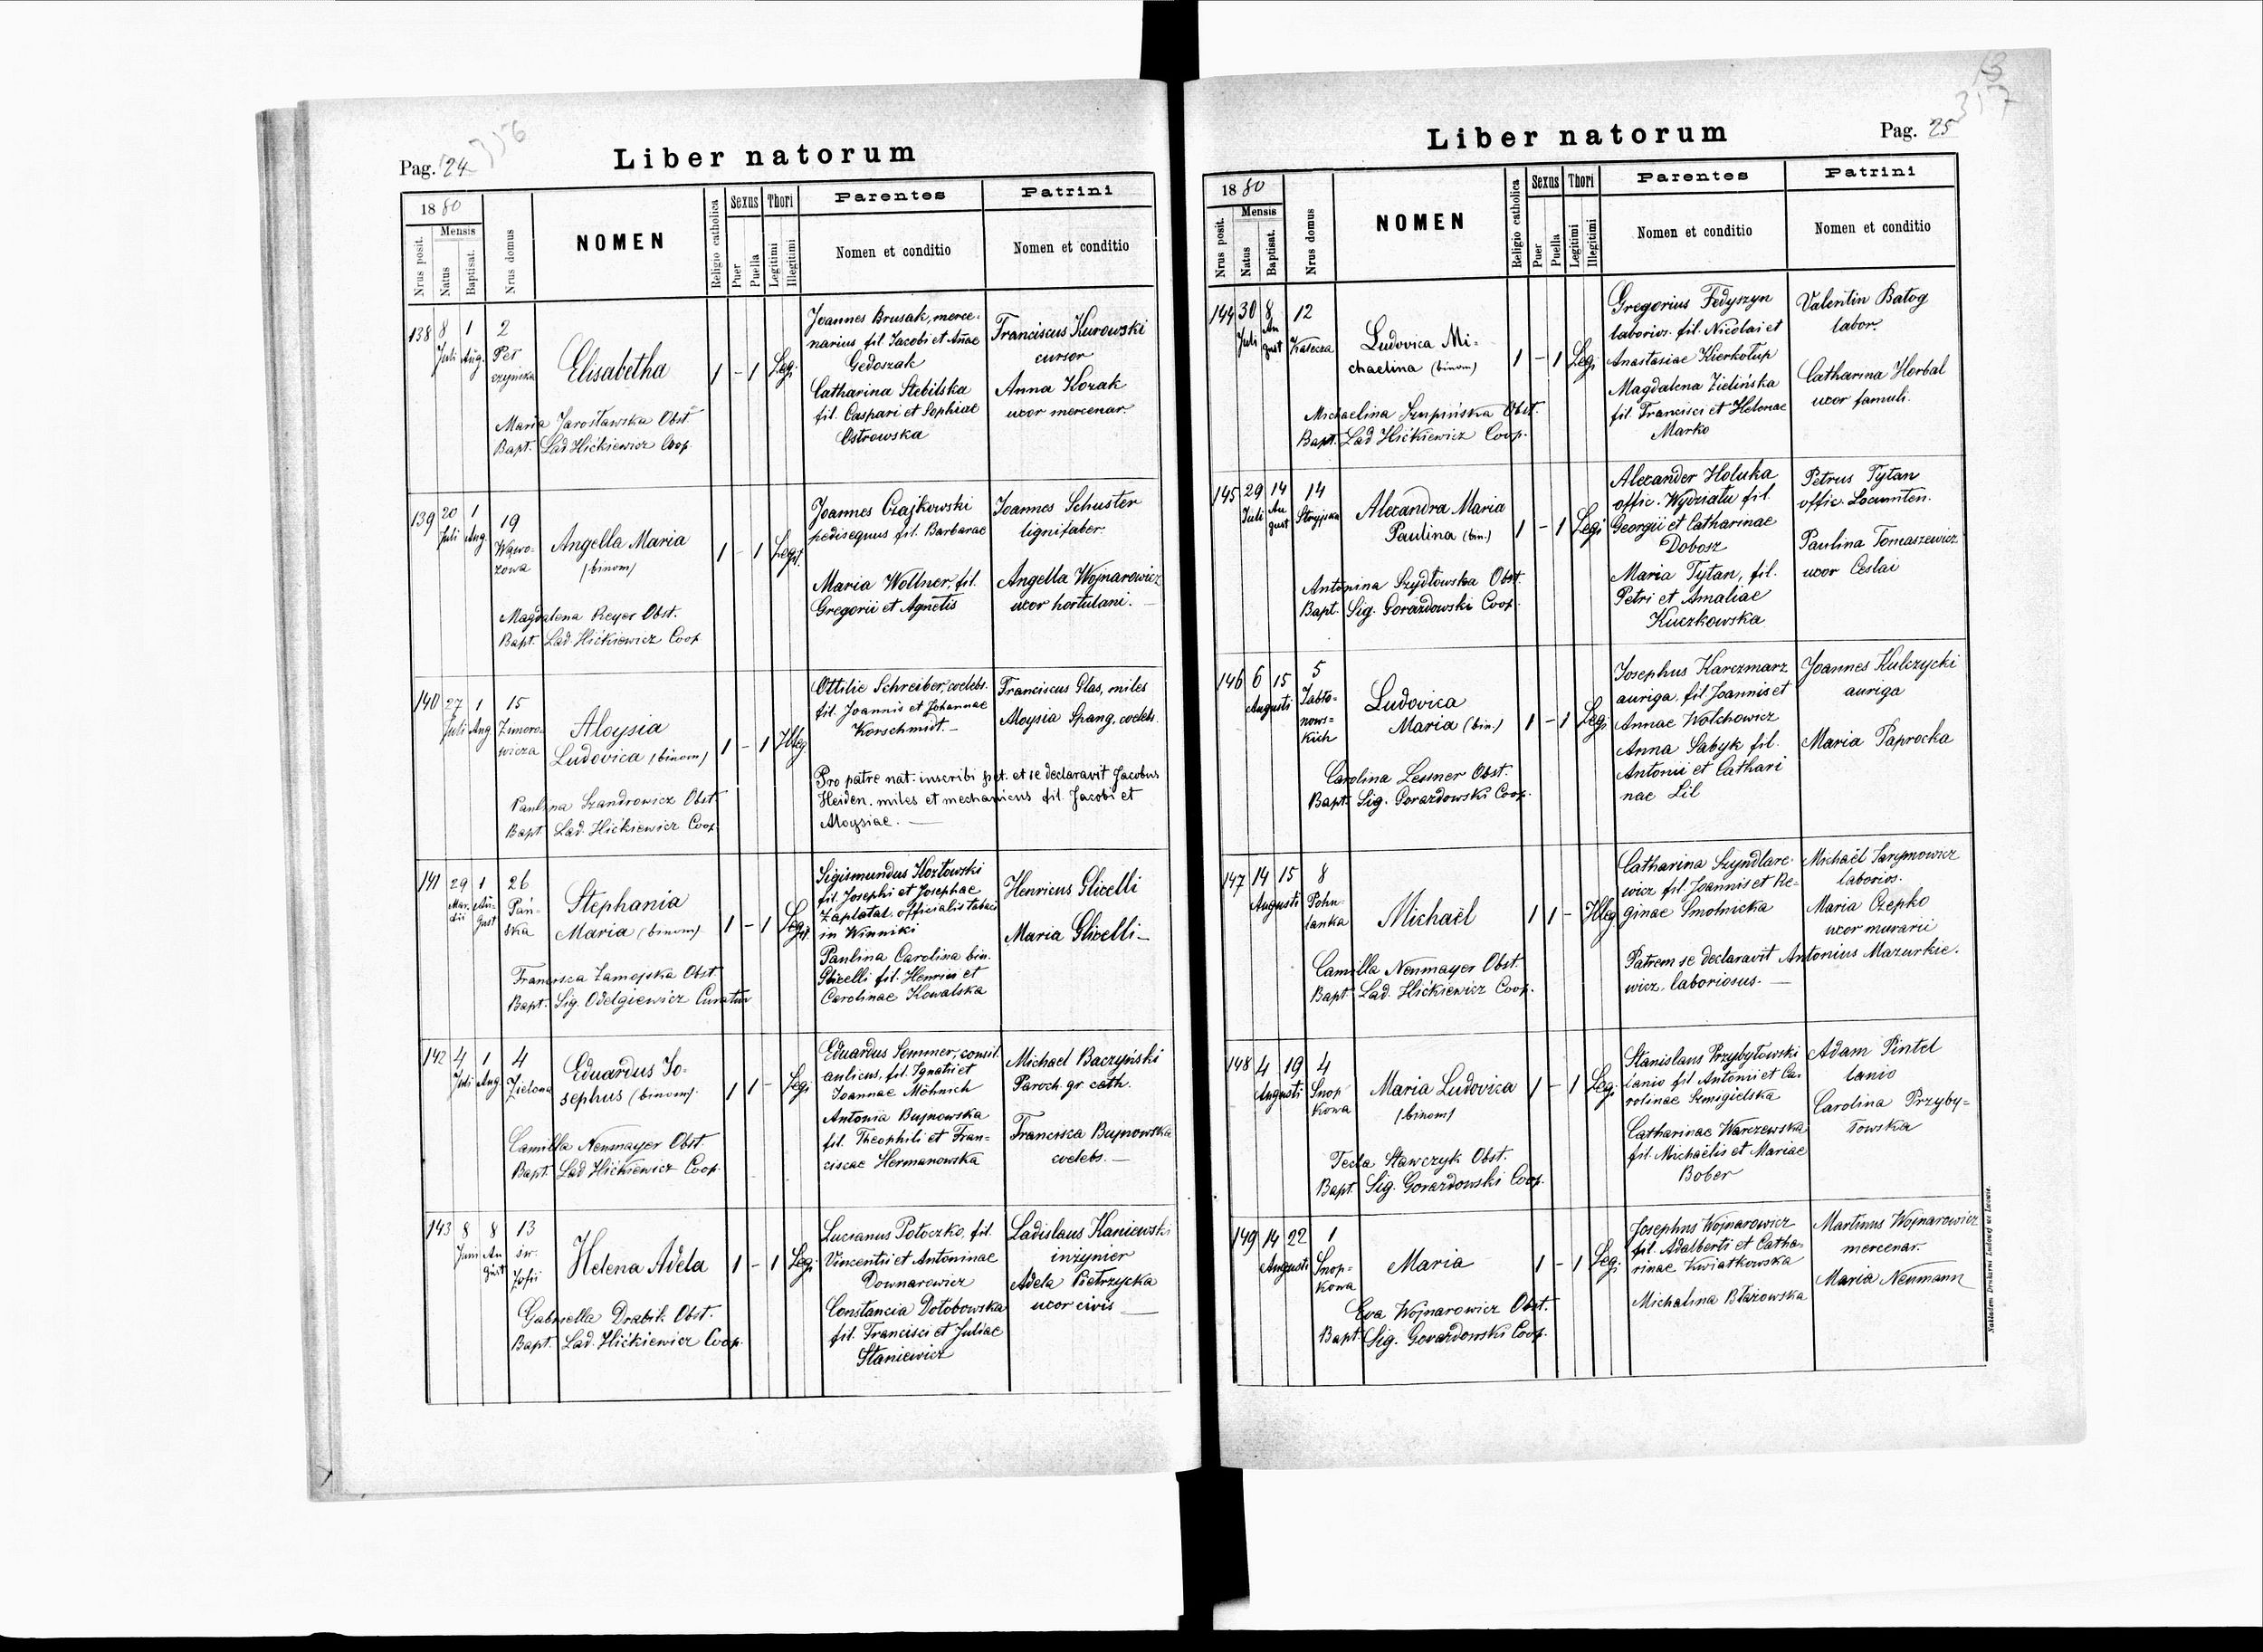 Pag. 24
356
Liber natorum
1880
Mensis
Nrus posit.
Natus
Baptisat.
Nrus domus
NOMEN
Religio catholica
Sexus
Puer
Puella
Thori
Legitimi
Illegitimi
Parentes
Nomen et conditio
Patrini
Nomen et conditio
138 8 Juli 1 Aug. 2
Elisabetha
1 - 1 Legi.
Maria Jarosławska Obst.
Bapt. Lad Hićkiewicz Coop.
Joannes Brusak, merce-
narius fil. Jacobi et Annae
Gedoszak
Catharina Stebilska
fil. Caspari et Sophiae
Ostrowska
Franciscus Kurowski
cursor
Anna Kozak
uxor mercenar.
139 20 Juli 1 Aug 19
Wąwo-
zowa
Angella Maria
(binom)
1 - 1 Legit.
Magdalena Reyer Obst.
Bapt. Lad. Hićkiewicz Coop
Joannes Czajkowski
pedisequus fil. Barbarae
Maria Wollner, fil.
Gregorii et Agnetis
Joannes Schuster
lignifaber.
Angella Wojnarowicz
uxor hortulani.
140 27 Juli 1 Aug 15
Zimoro-
wicza
Aloysia
Ludovica (binom)
1 - 1 Illeg
Paulina Szandrowicz Obst.
Bapt Lad. Hićkiewicz Coop
Ottilie Schreiber, coelebs.
fil. Joannis et Johannae
Korschmidt.
Pro patre nat. inscribi pet. et se declaravit Jacobus
Heiden. miles et mechanicus fil. Jacobi et
Aloysiae.
Franciscus Glas, miles
Aloysia Spang, coelebs.
141 29 Martii 1 August 26
Pań-
ska
Stephania
Maria (binom)
1 - 1 Legit.
Francisca Zamojska Obst.
Bapt. Sig. Odelgiewicz Curatus
Sigismundus Kozłowski
fil. Josephi et Josephae
Zaplatal. officialis tabaci
in Winniki
Paulina Carolina bin.
Glixelli fil. Henrici et
Carolinae Kowalska
Henricus Glixelli
Maria Glixelli
142 4 Juli 1 Aug 4
Zielona
Eduardus Jo-
sephus (binom)
1 1 - Legi
Camilla Neumayer Obst.
Bapt. Lad Hićkiewicz Coop.
Eduardus Sommer, consil.
aulicus, fil. Ignatii et
Joannae Möhnich
Antonia Bujnowska
fil. Theophili et Fran-
ciscae Hermanowska
Michael Baczyński
Paroch. gr. cath.
Francisca Bujnowska
coelebs.
143 8 Juni 8 August 13
św.
Zofii
Helena Adela
1 - 1 Legi
Gabriella Drabik Obst.
Bapt. Lad. Hićkiewicz Coop.
Lucianus Potoczko, fil.
Vincentii et Antoninae
Downarowicz
Constancia Dołobowska
fil. Francisci et Juliae
Staniewicz
Ladislaus Kaniewski
inżynier
Adela Pietrzycka
uxor civis
Liber natorum
Pag. 25
357
1880
Mensis
Nrus posit.
Natus
Baptisat.
Nrus domus
NOMEN
Religio catholica
Sexus
Puer
Puella
Thori
Legitimi
Illegitimi
Parentes
Nomen et conditio
Patrini
Nomen et conditio
144 30 Juli 8 August 12
Kalecza
Ludovica Mi-
chaelina (binom)
1 - 1 Legi
Michaelina Szupińska Obst.
Bapt. Lad Hićkiewicz Coop.
Gregorius Fedyszyn
laborios. fil. Nicolai et
Anastasiae Kierkołup
Magdalena Zielińska
fil. Francisci et Helenae
Marko
Valentin Batog
labor.
Catharina Horbal
uxor famuli.
145 29 Juli 14 August 14
Stryjska
Alexandra Maria
Paulina (bin.)
1 - 1 Legi
Antonina Szydłowska Obst.
Bapt. Sig. Gorazdowski Coop.
Alexander Holuka
offic. Wydziału fil.
Georgii et Catharinae
Dobosz
Maria Tytan, fil.
Petri et Amaliae
Kuczkowska
Petrus Tytan
offic. Locumten.
Paulina Tomaszewicz
uxor Ceslai
146 6 15 Augusti 5
Jabło-
nows-
kich
Ludovica
Maria (bin.)
1 - 1 Legi
Carolina Lessner Obst.
Bapt. Sig. Gorazdowski Coop.
Josephus Karczmarz
auriga, fil. Joannis et
Annae Wolchowicz
Anna Sabyk fil.
Antonii et Cathari
nae Lil
Joannes Kulczycki
auriga
Maria Paprocka
147 14 15 Augusti 8
Pohu-
lanka
Michaël
1 1 - Illeg
Camilla Neumayer Obst.
Bapt Lad. Hićkiewicz Coop.
Catharina Szyndlare-
wicz fil. Joannis et Re-
ginae Smolnicka
Patrem se declaravit Antonius Mazurkie-
wicz, laboriosus.
Michaël
laborios.
Maria Czepko
uxor murarii
148 4 19 Augusti 4
Snop
kowa
Maria Ludovica
(binom)
1 - 1 Legi.
Tecla Stawczyk Obst.
Bapt. Sig. Gorazdowski Coop.
Stanislaus Przybyłowski
lanio fil Antonii et Ca-
rolinae Szmigielska
Catharinae Warczewska
fil. Michaëlis et Mariae
Bober
Adam Pintel
lanio
Carolina Przyby-
łowska
149 14 22 Augusti 1
Snop-
kowa
Maria
1 - 1 Legi.
Eva Wojnarowicz Obst.
Bapt. Sig. Gorazdowski Coop.
Josephus Wojnarowicz
fil. Adalberti et Catha-
rinae Kwiatkowska
Michalina Błażowska
Martinus Wojnarowicz
mercenar.
Maria Neumann
Nakładem Drukarni Ludowej we Lwowie.